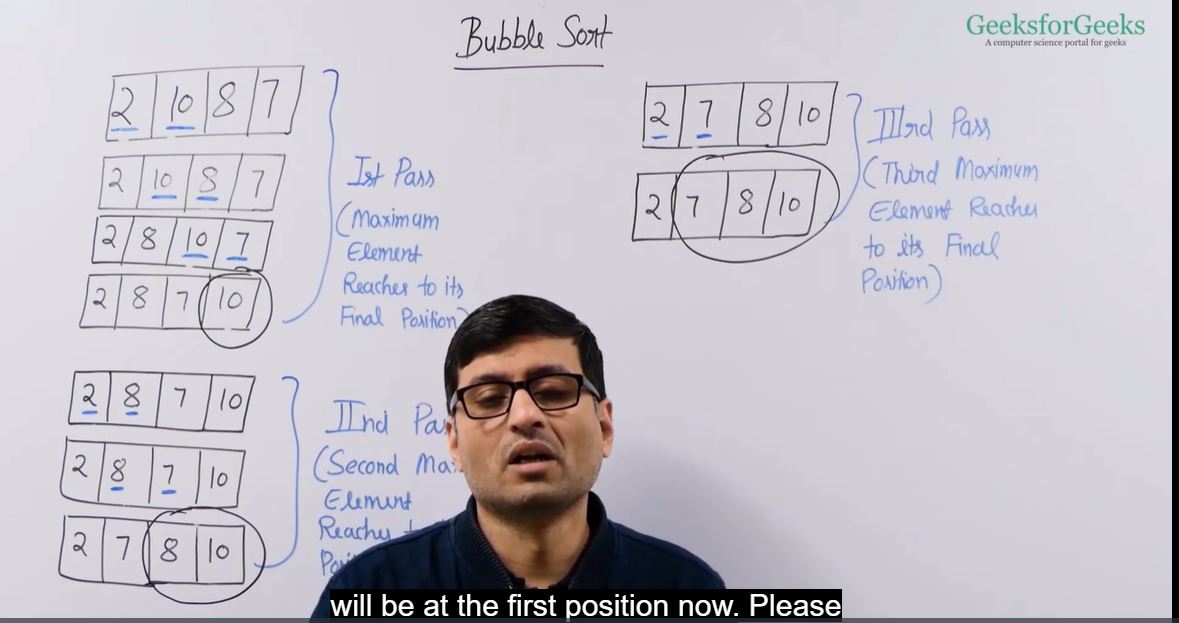 Bubble Sort
GeeksforGeeks
A computer science portal for geeks
2 10 8 7
2 10 8 7
2 8 10 7
2 8 7 10
Ist Pass
(Maximum
Element
Reaches to its
Final Position)
2 8 7 10
2 8 7 10
2 7 8 10
IInd
(Second
Element
Reaches
2 7 8 10
2 7 8 10
IIIrd Pass
(Third Maximum
Element Reaches
to its Final
Position)
will be at the first position now. Please